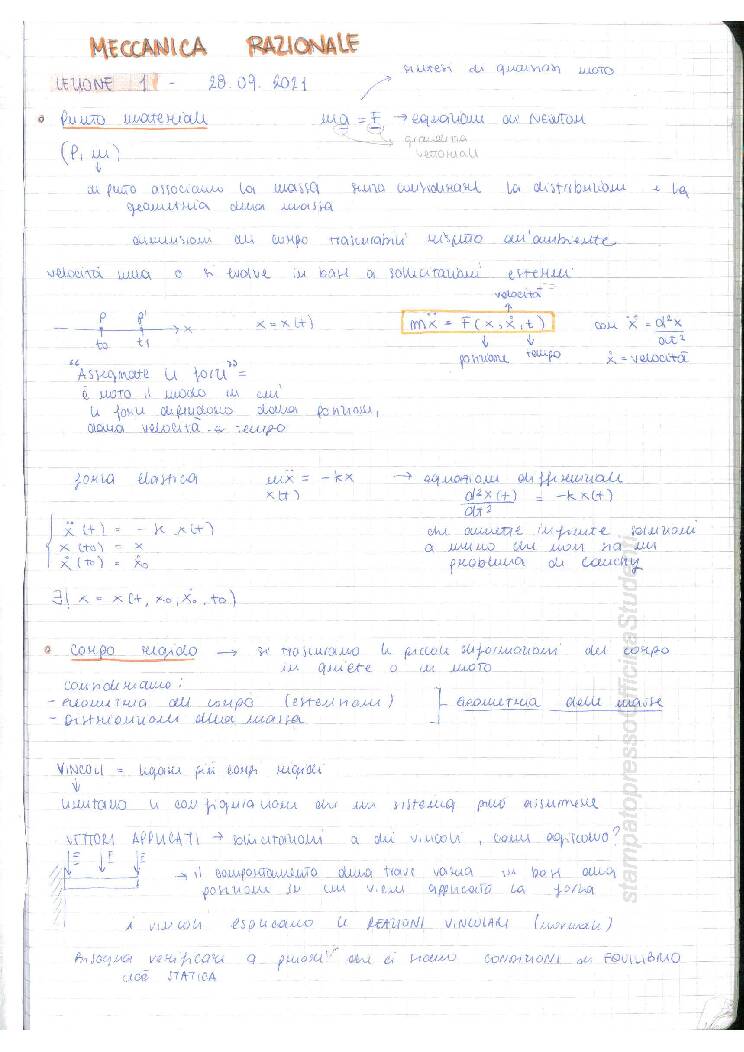 MECCANICA RAZIONALE
LEZIONE 1 - 28.09.2021
sintesi di qualsiasi moto
Punto materiale
ma = F → equazione di NEWTON
grandezza
vettoriali
(P, m)
al punto associamo la massa senza considerare la distribuzione e la
geometria della massa
dimensioni del corpo trascurabili rispetto all'ambiente
velocità nulla o si evolve in base a sollecitazioni esterne
velocità
P P'
x
t0 t1
x = x(t)
mẍ = F(x, ẋ, t)
con ẍ = d²x
dt²
posizione tempo
ẋ = velocità
"Assegnate le forze" =
è noto il modo in cui
le forze dipendono dalla posizione,
dalla velocità e tempo
forza elastica
mẍ = -kx → equazione differenziale
x(t)
d²x(t) = -kx(t)
dt²
ẍ(t) = -k x(t)
x(t0) = x
ẋ(t0) = ẋ0
che ammette infinite soluzioni
a meno che non sia un
problema di Cauchy
∃! x = x(t, x0, ẋ0, t0)
Corpo rigido → si trascurano le piccole deformazioni del corpo
in quiete o in moto
consideriamo:
- geometria del corpo (estensione)
- distribuzione della massa
geometria delle masse
VINCOLI = legami fra corpi rigidi
limitano le configurazioni che un sistema può assumere
VETTORI APPLICATI → sollecitazioni a dei vincoli, come agiscono?
F F F
→ il comportamento della trave varia in base alla
posizione in cui viene applicata la forza
i vincoli esplicano le REAZIONI VINCOLARI (normali)
Bisogna verificare a priori che ci siano CONDIZIONI di EQUILIBRIO
cioè STATICA
stampatopressoOfficinaStudenti